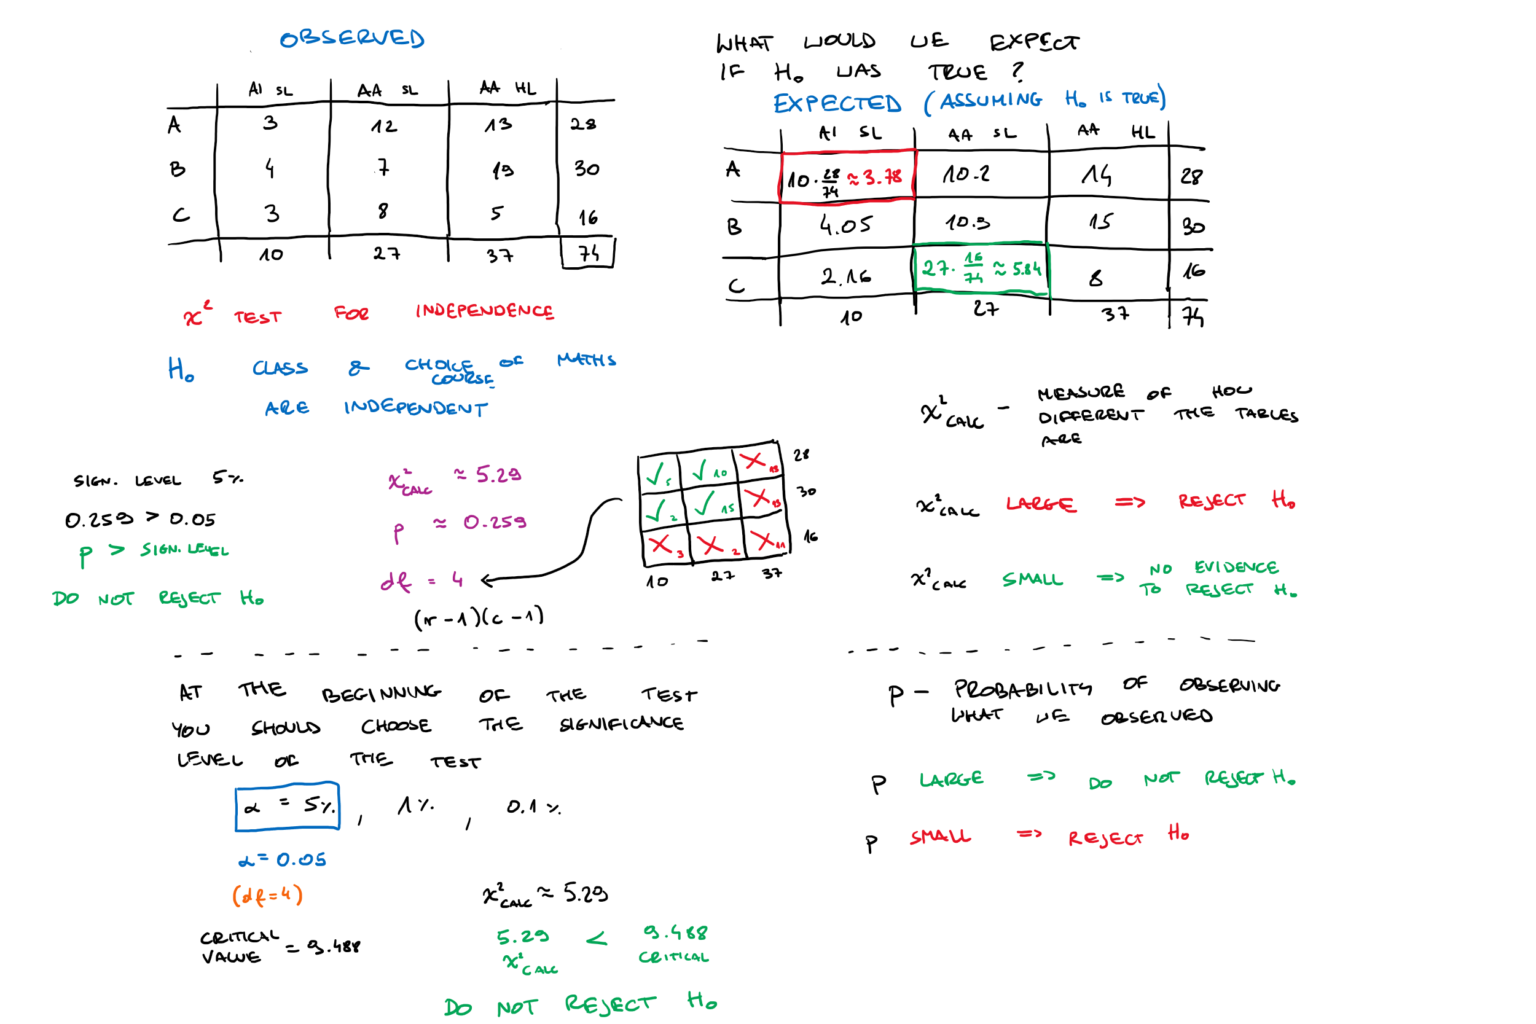 OBSERVED
AI SL AA SL AA HL
A 3 12 13 28
B 4 7 19 30
C 3 8 5 16
10 27 37 74
χ² TEST FOR INDEPENDENCE
H₀ CLASS & CHOICE OF MATHS
COURSE
ARE INDEPENDENT
WHAT WOULD WE EXPECT
IF H₀ WAS TRUE ?
EXPECTED (ASSUMING H₀ IS TRUE)
AI SL AA SL AA HL
A 10 · 28/74 ≈ 3.78 10.2 14 28
B 4.05 10.9 15 30
C 2.16 27 · 16/74 ≈ 5.84 8 16
10 27 37 74
χ²CALC – MEASURE OF HOW
DIFFERENT THE TABLES
ARE
χ²CALC LARGE => REJECT H₀
χ²CALC SMALL => NO EVIDENCE
TO REJECT H₀
SIGN. LEVEL 5%
0.259 > 0.05
p > SIGN. LEVEL
DO NOT REJECT H₀
χ²CALC ≈ 5.29
p ≈ 0.259
df = 4
(r-1)(c-1)
✓ 5 ✓ 10 X 13 28
✓ 2 ✓ 15 X 13 30
X 3 X 2 X 11 16
10 27 37
AT THE BEGINNING OF THE TEST
YOU SHOULD CHOOSE THE SIGNIFICANCE
LEVEL OF THE TEST
α = 5% , 1% , 0.1%
α = 0.05
(df=4)
CRITICAL
VALUE = 9.488
χ²CALC ≈ 5.29
5.29 < 9.488
χ²CALC CRITICAL
DO NOT REJECT H₀
p – PROBABILITY OF OBSERVING
WHAT WE OBSERVED
p LARGE => DO NOT REJECT H₀
p SMALL => REJECT H₀